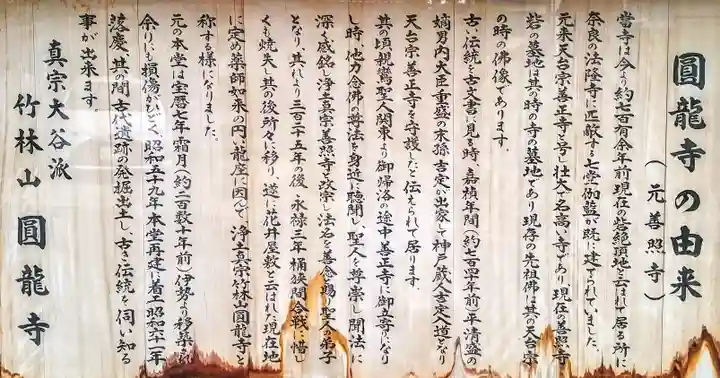 圓龍寺の由来
(元善照寺)
當寺は今より約七百有余年前現在の岩絶頂地と云はれて居る所に
奈良の法隆寺に匹敵する七堂伽藍が既に建てられていました。
元来天台宗善正寺と号し壮大で名高い寺であり現在の善照寺
砦の墓地は其の時の寺の墓地であり現存の先祖佛は其の天台宗
の時の佛像であります。
古い伝統を古文書に見る時、嘉禎年間(約七百四年前)平清盛の
嫡男内大臣重盛の末孫吉定が出家して神戸蔵人吉定入道となり
天台宗善正寺を守護したと伝えられて居ります。
其の頃親鸞聖人関東より御帰洛の途中善正寺に御立寄になり
し時、他力念佛の尊法を身近に聴聞し、聖人を尊崇し聞法に
深く感銘し浄土真宗善照寺と改宗し法名を善念と賜り聖人の弟子
となり、其れより三百二十五年の後、永禄三年桶狭間合戦に惜し
くも焼失し其の後所々に移り、遂に花井屋敷と云はれた現在地
に定め薬師如来の円い龍座に因んで、浄土真宗竹林山圓龍寺と
称する様になりました。
元の本堂は宝暦七年霜月(約二百数十年前)伊勢より移築
余りにも損傷がひどく、昭和五十九年本堂再建に着工昭和六十一年
竣慶、其の間古代遺跡の発掘出土し、古き伝統を伺い知る
事が出来ます。
真宗大谷派
竹林山 圓龍寺